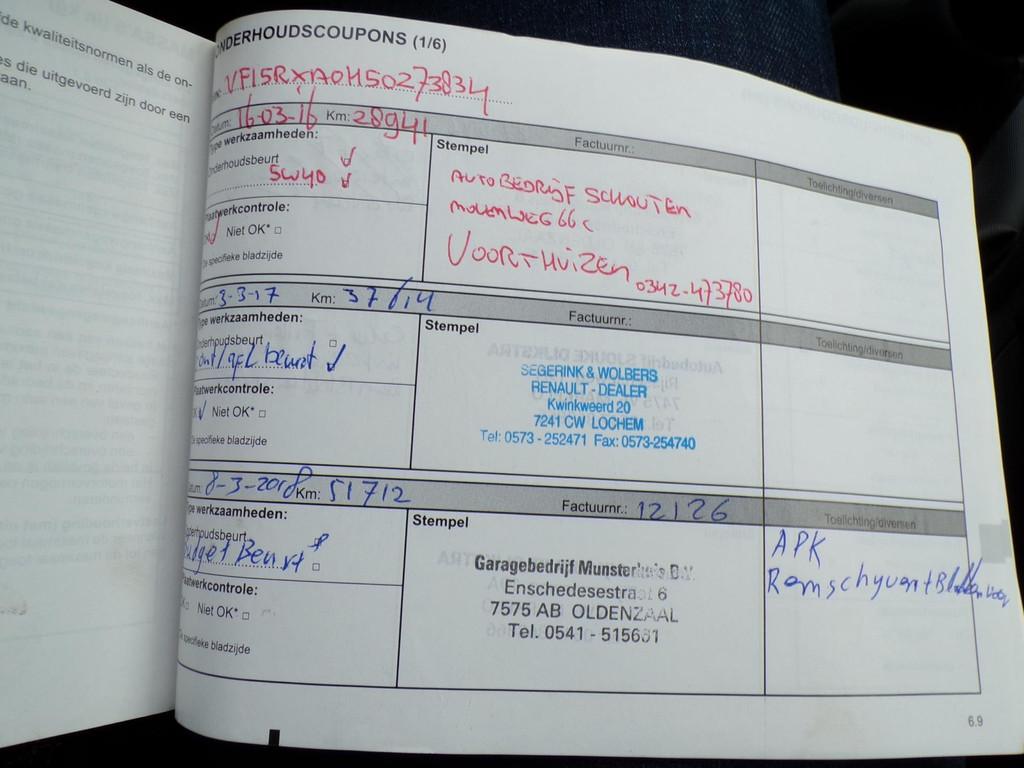 de kwaliteitsnormen als de on-
es die uitgevoerd zijn door een
aan.
ONDERHOUDSCOUPONS (1/6)
VF15RXA0H50273834
Datum: 16-03-16 Km: 28941 Factuurnr.: Toelichting/diversen
Type werkzaamheden:
Onderhoudsbeurt
5W40
Plaatwerkcontrole:
Niet OK*
Zie specifieke bladzijde
Stempel
AUTOBEDRIJF SCHOUTEN
MOLENWEG 66 c
VOORTHUIZEN 0342-473780
Datum: 3-3-17 Km: Factuurnr.: Toelichting/diversen
Type werkzaamheden:
Onderhoudsbeurt
beurt
Plaatwerkcontrole:
Niet OK*
Zie specifieke bladzijde
Stempel
SEGERINK & WOLBERS
RENAULT - DEALER
Kwinkweerd 20
7241 CW LOCHEM
Tel: 0573 - 252471 Fax: 0573-254740
Datum: 8-3-2018 Km: 51712 Factuurnr.: 12126 Toelichting/diversen
Type werkzaamheden:
Onderhoudsbeurt
Budget Beurt
Plaatwerkcontrole:
OK Niet OK*
Zie specifieke bladzijde
Stempel
Garagebedrijf Munsterhuis B.V.
Enschedesestraat 6
7575 AB OLDENZAAL
Tel. 0541 - 515661
APK
Remschyven + Blokken Voor
6.9